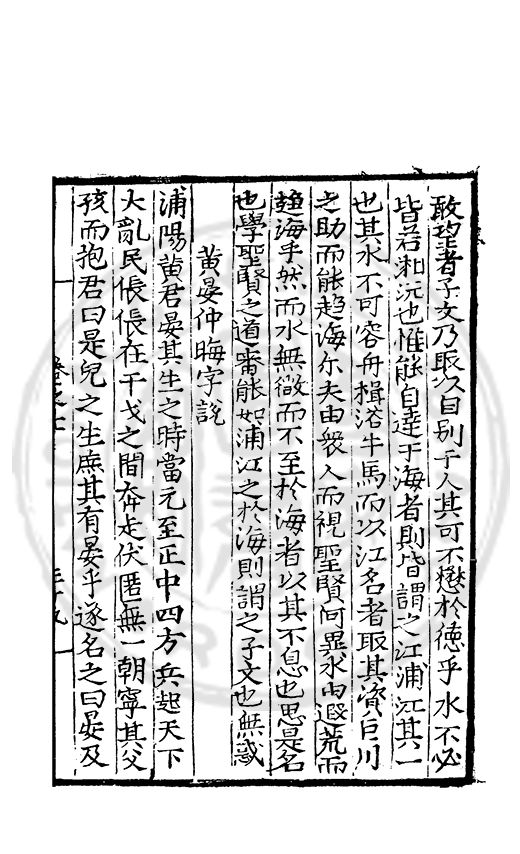 敢望者子文乃取以自别于人其可不懋於德乎水不必
皆若湘沅也惟能自達于海者則皆謂之江浦江其一
也其水不可容舟楫浴牛馬而以江名者取其資巨川
之助而能趋海尔夫由衆人而視聖賢何異水由遐荒而
趋海乎然而水無微而不至於海者以其不息也思是名
也學聖賢之道審能如浦江之於海則謂之子文也無惑
黄晏仲晦字説
浦陽黄君晏其生之時當元至正中四方兵起天下
大亂民倀倀在干戈之間奔走伏匿無一朝寧其父
孩而抱君曰是兒之生庶其有晏乎遂名之曰晏及
卷之七
三十九